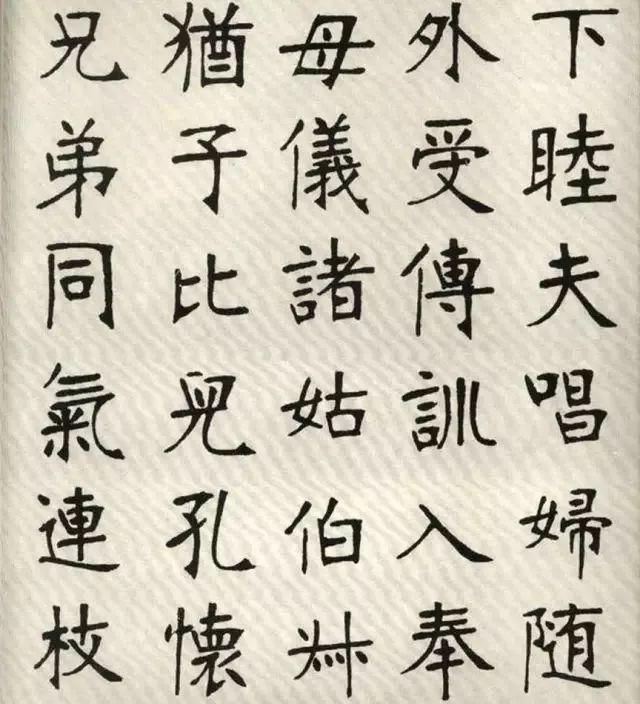 下睦夫唱婦随
外受傅訓入奉
母儀諸姑伯叔
猶子比兒孔懷
兄弟同氣連枝